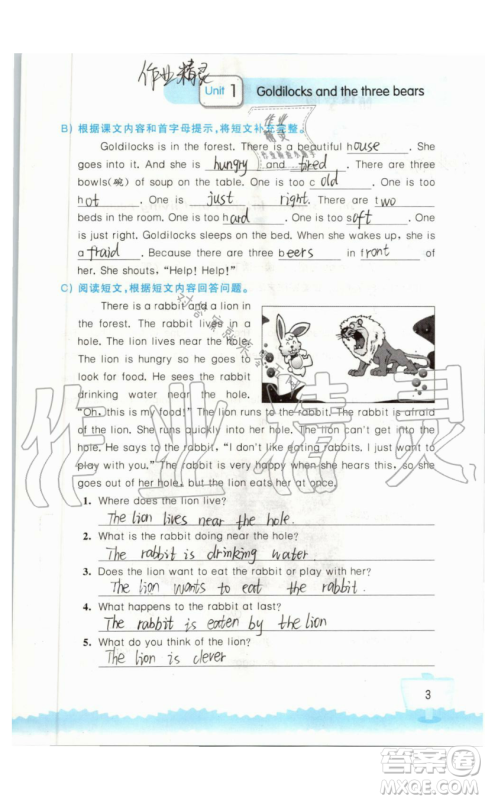 作业精灵
Unit 1 Goldilocks and the three bears
B) 根据课文内容和首字母提示,将短文补充完整。
Goldilocks is in the forest. There is a beautiful house. She
goes into it. And she is hungry and tired. There are three
bowls(碗) of soup on the table. One is too cold. One is too
hot. One is just right. There are two
beds in the room. One is too hard. One is too soft. One
is just right. Goldilocks sleeps on the bed. When she wakes up, she is
afraid. Because there are three beers in front of
her. She shouts, "Help! Help!"
C) 阅读短文,根据短文内容回答问题。
There is a rabbit and a lion in
the forest. The rabbit lives in a
hole. The lion lives near the hole.
The lion is hungry so he goes to
look for food. He sees the rabbit
drinking water near the hole.
"Oh, this is my food!" The lion runs to the rabbit. The rabbit is afraid
of the lion. She runs quickly into her hole. The lion can't get into the
hole. He says to the rabbit, "I don't like eating rabbits. I just want to
play with you." The rabbit is very happy when she hears this, so she
goes out of her hole, but the lion eats her at once.
1. Where does the lion live?
The lion lives near the hole.
2. What is the rabbit doing near the hole?
The rabbit is drinking water.
3. Does the lion want to eat the rabbit or play with her?
The lion wants to eat the rabbit.
4. What happens to the rabbit at last?
The rabbit is eaten by the lion
5. What do you think of the lion?
The lion is clever
3
作业精灵
答案圈
MXQE.COM